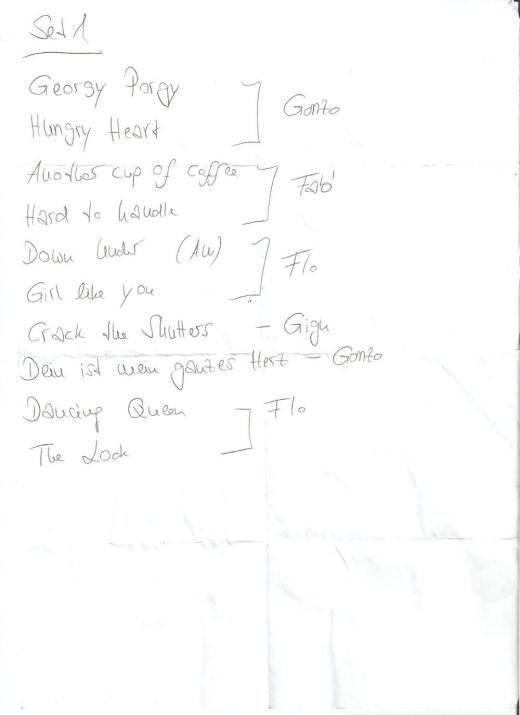 Set 1
Georgy Porgy
Hungry Heart
Gonzo
Another cup of coffee
Hard to handle
Fabi
Down Under (Am)
Girl like you
Flo
Crack the Shutters - Gigu
Dein ist mein ganzes Herz - Gonzo
Dancing Queen
The Look
Flo